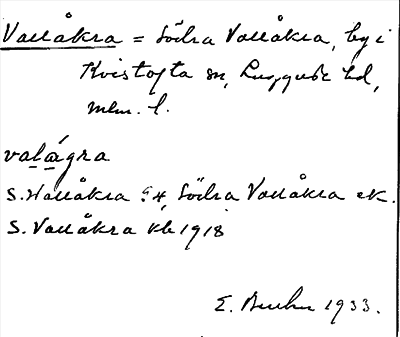 Vallåkra = Södra Vallåkra, by i
Kvistofta sn, Luggude hd,
mlm. l.
valágra
S. Wallåkra G4, Södra Vallåkra ek.
S. Vallåkra kb 1918
E. 1933.